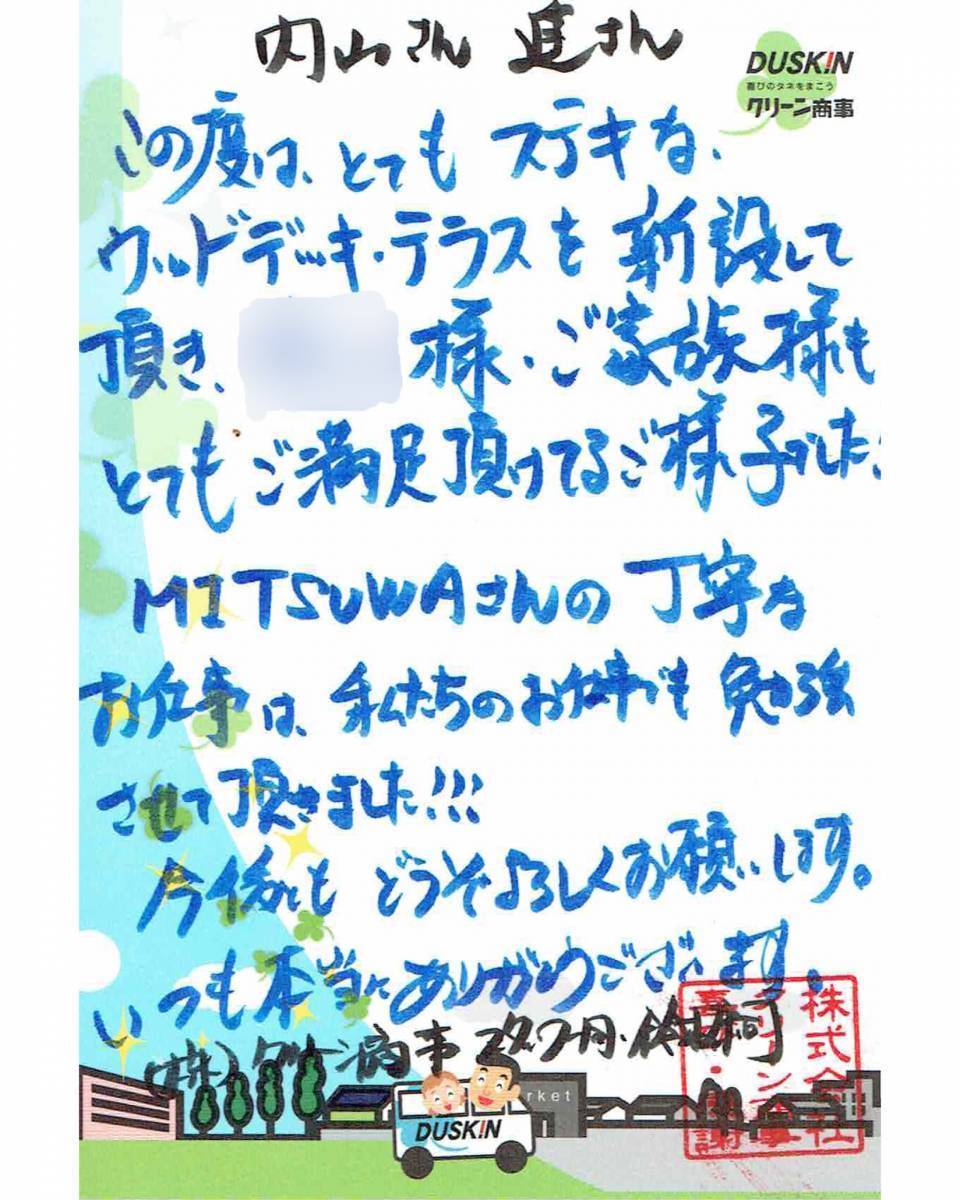 内山さん 進さん
DUSKIN
喜びのタネをまこう
クリーン商事
この度は、とても ステキな、
ウッドデッキ・テラスを 新設して
頂き、 様・ご家族様も
とてもご満足頂けてるご様子でした。
MITSUWAさんの 丁寧な
お仕事は、私たちのお仕事でも 勉強
させて頂きました!!!
今後とも どうぞよろしくお願いします。
いつも本当にありがとうございます。
(株)クリーン商事 スタッフ一同・鈴木
株式会社
クリーン商事
喜び・感謝
rket
DUSKIN